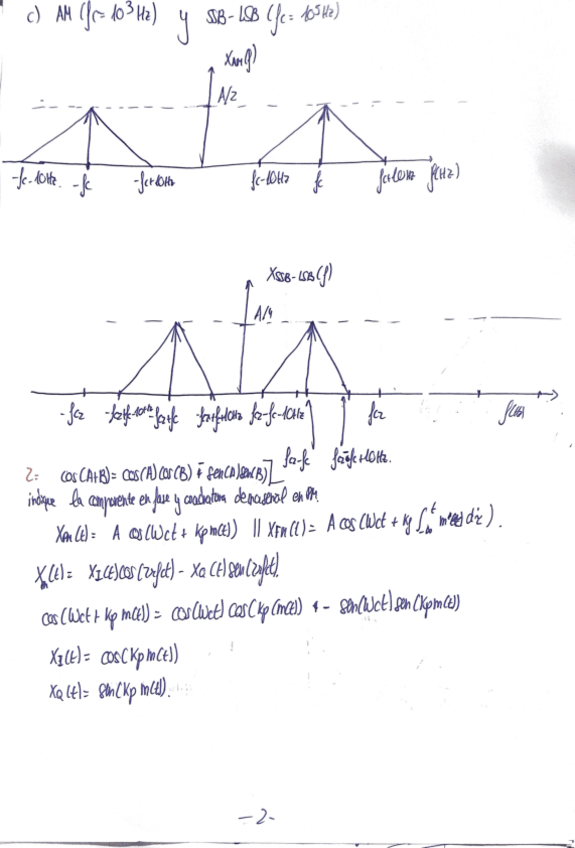 c) AM (fc=10³Hz) y SSB-LSB (fc=10⁵Hz)
XAM(f)
A/2
-fc-10Hz. -fc -fc+10Hz fc-10Hz fc fc+10Hz f(Hz)
XSSB-LSB(f)
A/4
-fc2 -fc2+fc-10Hz -fc2+fc -fc2+fc+10Hz fc2-fc-10Hz fc2
fc2-fc fc2-fc+10Hz.
2: cos(A+B)= cos(A)cos(B) ∓ sen(A)sen(B)]
indique la componente en fase y cuadratura de na señal en PM.
XPM(t)= A cos(Wct + kp m(t)) || XFM(t)= A cos(Wct + kf ∫
X(t)= XI(t)cos(2πfct) - XQ(t)sen(2πfct)
cos(Wct + kp m(t)) = cos(Wct) cos(kp(m(t)) - sen(Wct)sen(kp m(t))
XI(t)= cos(kp m(t))
XQ(t)= sin(kp m(t)).
-2-